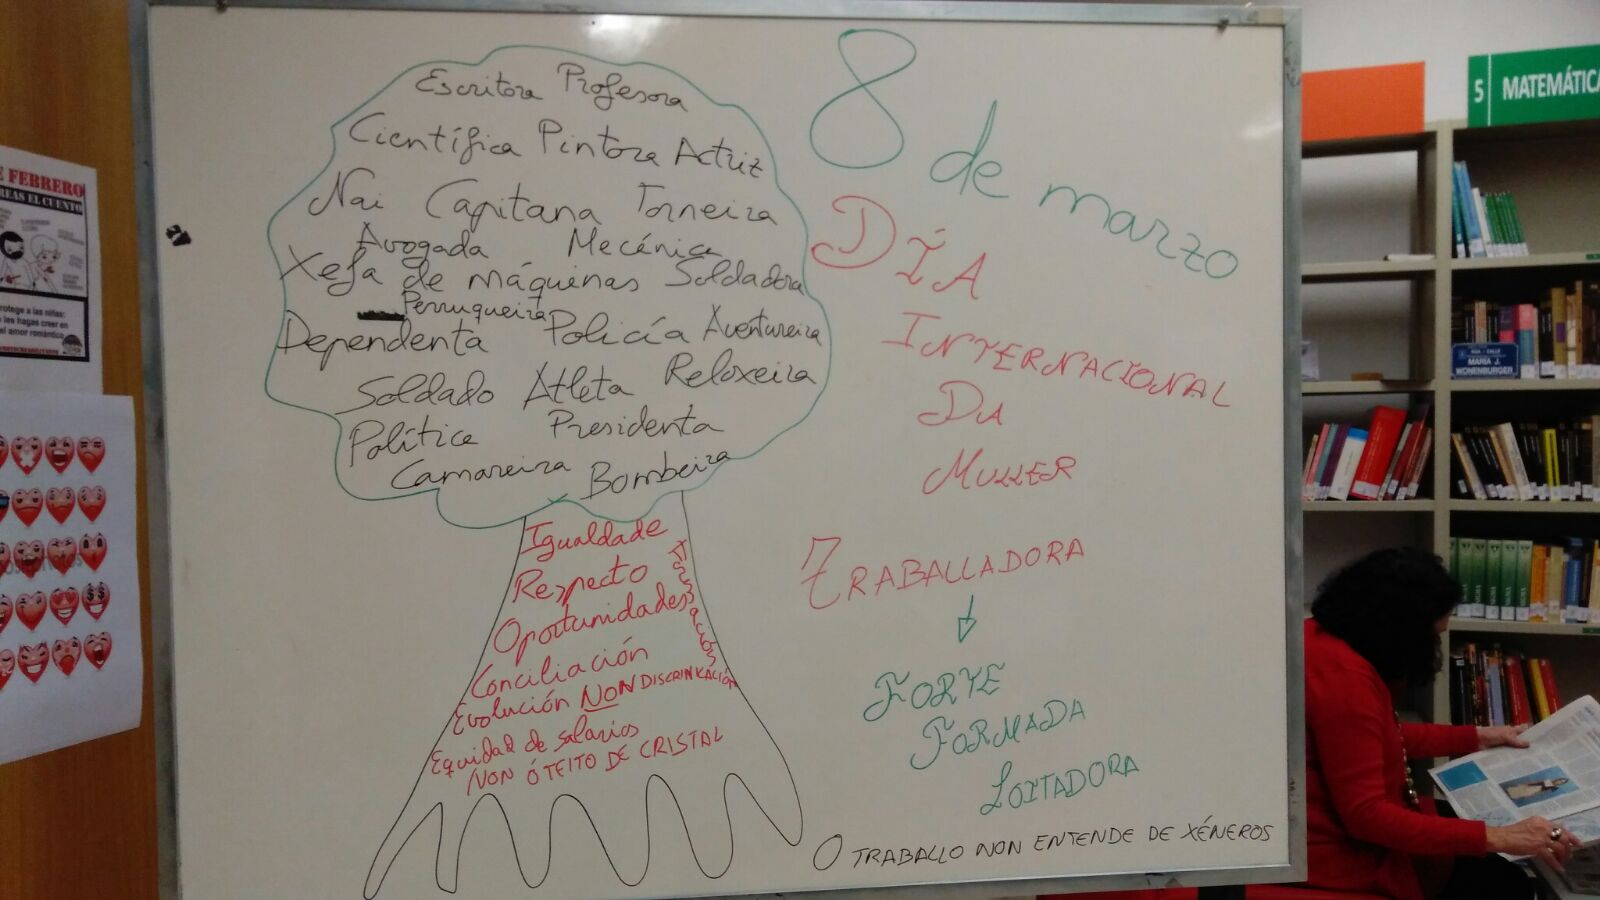 Escritora Profesora
Científica Pintora Actriz
Nai Capitana Torneira
Avogada Mecénica
Xefa de máquinas Soldadora
Perruqueira
Dependenta Policía Aventureira
Soldado Atleta Reloxeira
Política Presidenta
Camareira Bombeira
Igualdade
Respecto
Oportunidades
Formación
Conciliación
Evolución NON DISCRINKACIÓN
Equidad de salarios
NON Ó TEITO DE CRISTAL
8 de marzo
DÍA
INTERNACIONAL
DA
MULLER
TRABALLADORA
FORTE
FORMADA
LOITADORA
O TRABALLO NON ENTENDE DE XÉNEROS
E FEBRERO
REAS EL CUENTO
rotege a las niñas:
les hagas creer en
el amor romántico
5 MATEMÁTICA
RÚA - CALLE
MARÍA J.
WONENBURGER